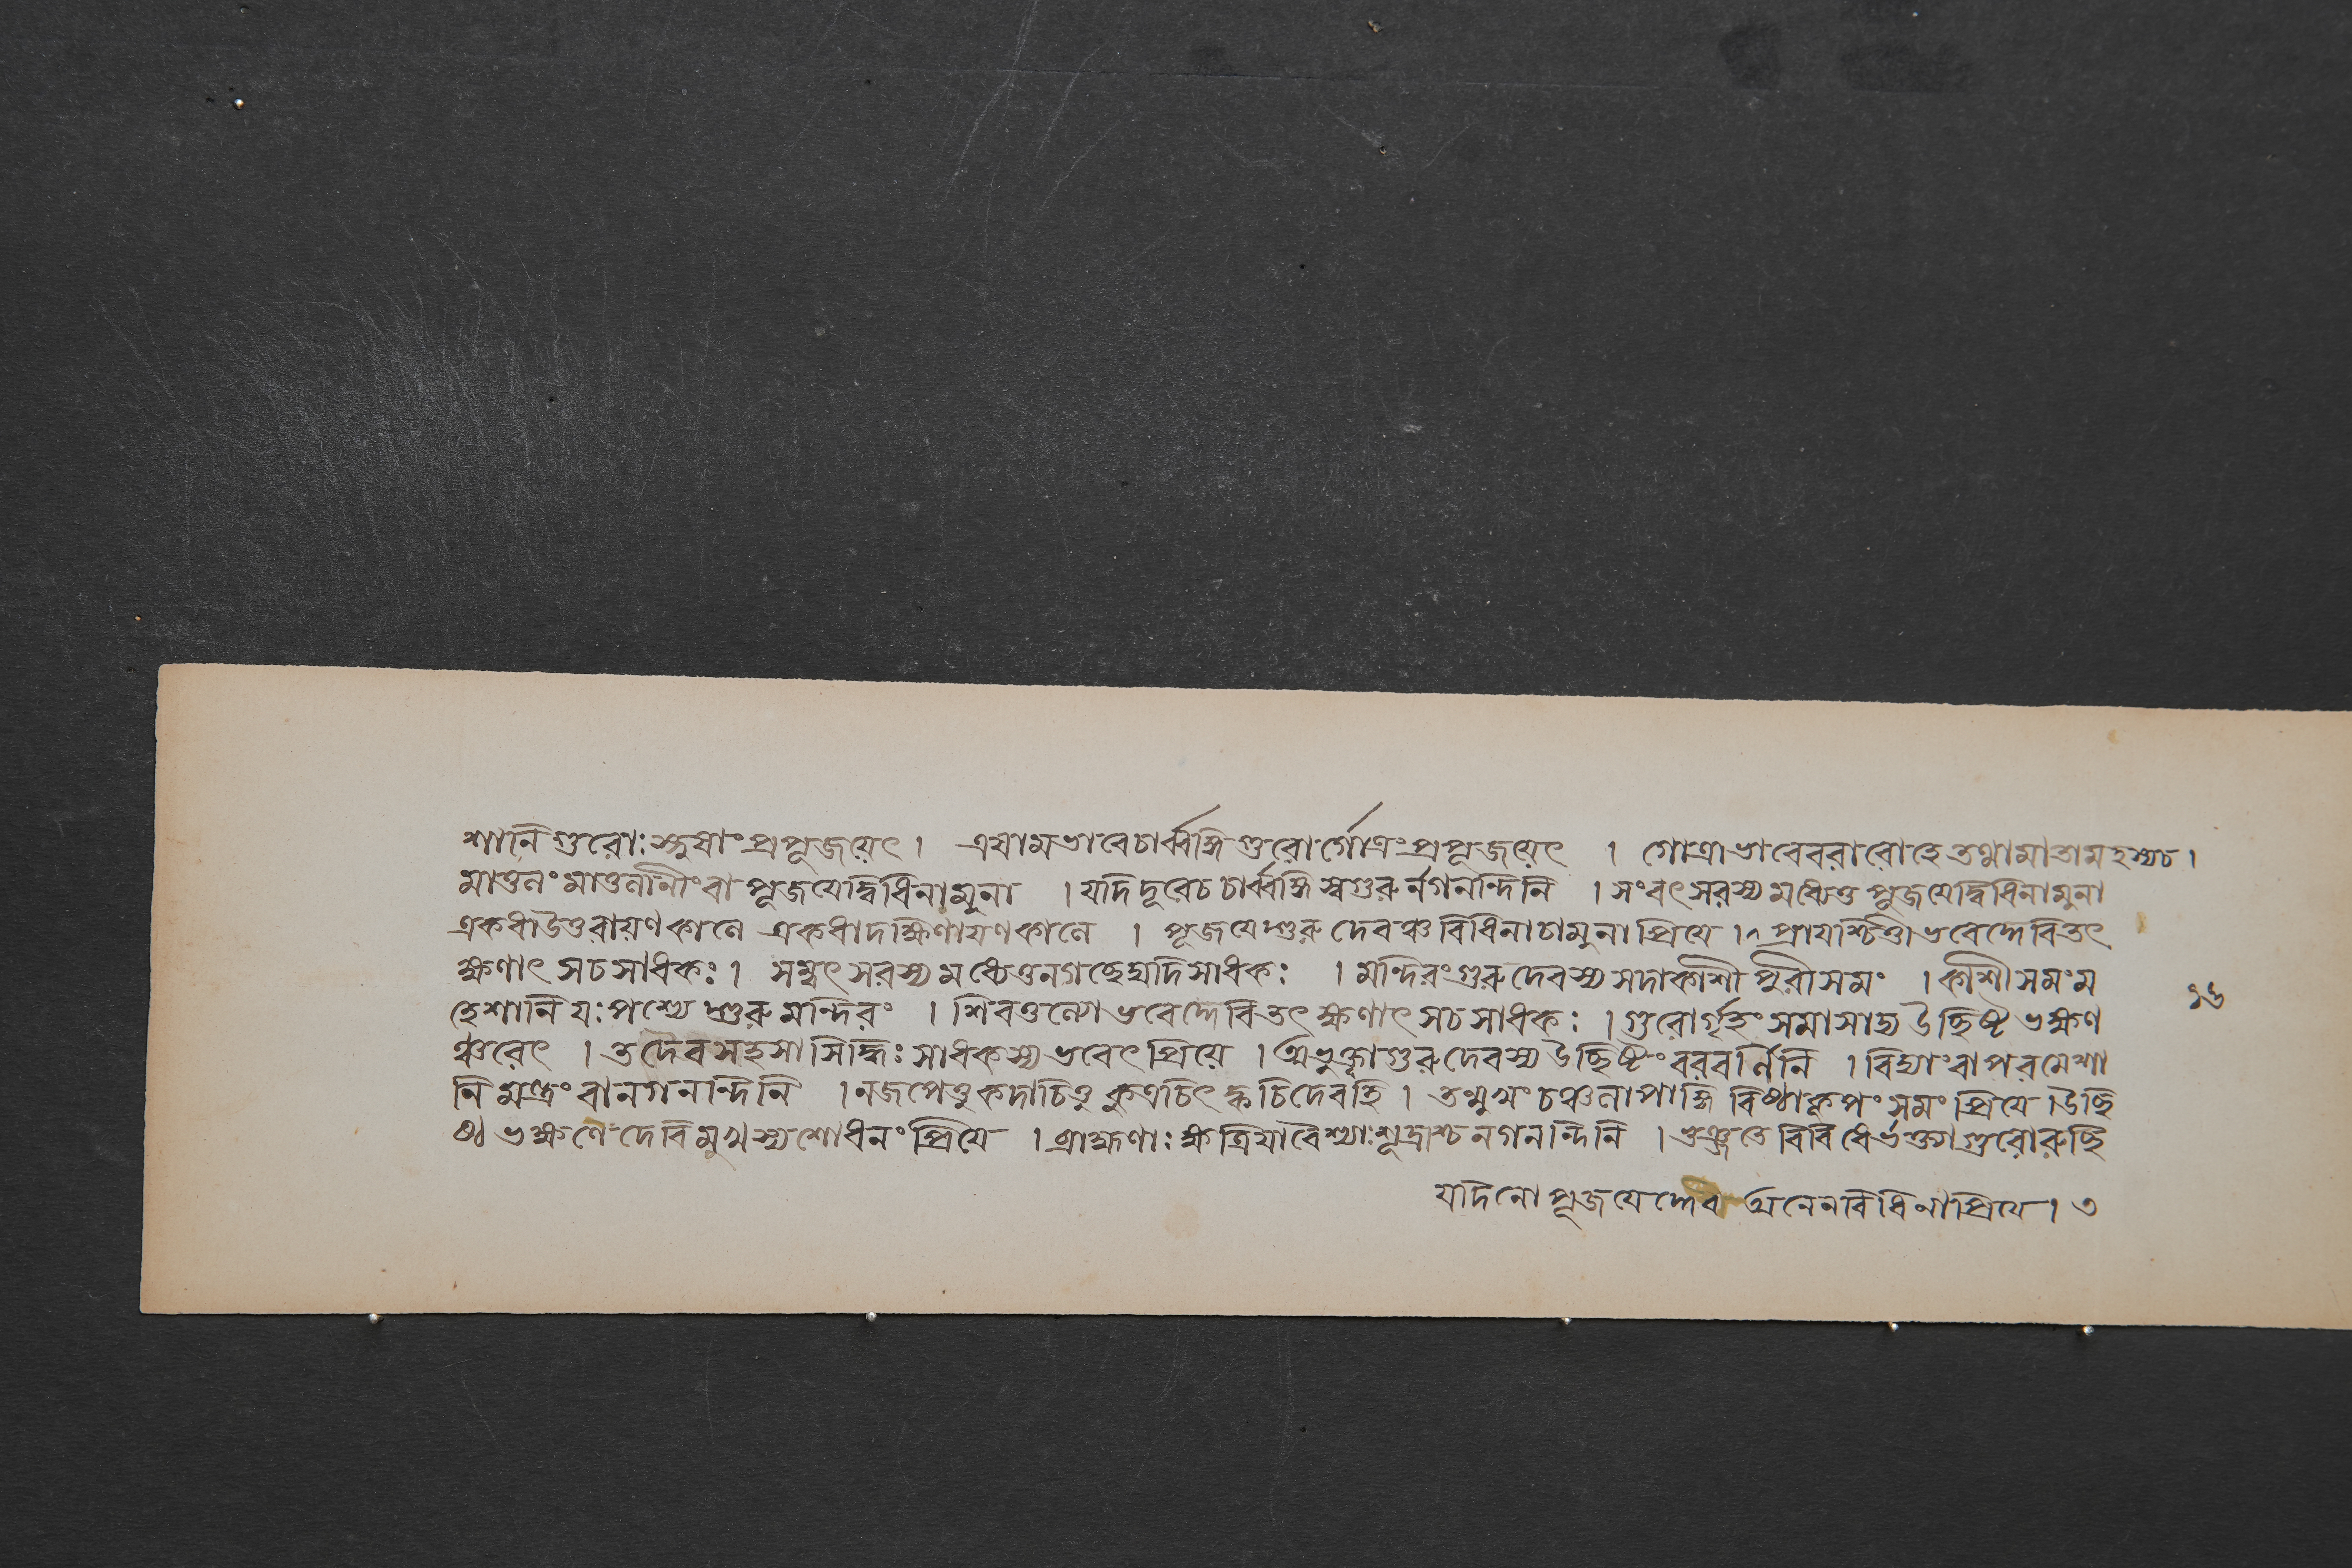 শানি গুরোঃ স্নুষাং প্রপূজয়েৎ । এষামভাবে চার্ব্বঙ্গি গুরোর্গোত্রং প্রপূজয়েৎ । গোত্রাভাবে বরারোহে তথা মাতামহস্য চ ।
মাতুলং মাতুলানীং বা পূজয়েদ্বিধিনামুনা । যদি দূরে চ চার্ব্বঙ্গি স্বগুরুর্নগনন্দিনি । সংবৎসরস্য মধ্যে তু পূজয়েদ্বিধিনামুনা
একধা উত্তরায়ণকালে একধা দক্ষিণায়ণকালে । পূজয়েদ্গুরুদেবঞ্চ বিধিনা চামুনা প্রিয়ে । ^ প্রায়শ্চিত্তী ভবেদ্দেবি তৎ
ক্ষণাৎ স চ সাধকঃ । সম্বৎসরস্য মধ্যে তু ন গচ্ছেদ্যদি সাধকঃ । মন্দিরং গুরুদেবস্য সদা কাশীপুরীসমং । কাশীসমং ম
হেশানি যঃ পশ্যেদ্গুরুমন্দিরং । শিবতুল্যো ভবেদ্দেবি তৎক্ষণাৎ স চ সাধকঃ । গুরোর্গৃহং সমাসাদ্য উচ্ছিষ্টভক্ষণ
ঞ্চরেৎ । তদৈব সহসা সিদ্ধিঃ সাধকস্য ভবেৎ প্রিয়ে । অভুক্ত্বা গুরুদেবস্য উচ্ছিষ্টং বরবর্ণিনি । বিদ্যাং বা পরমেশা
নি মন্ত্রং বা নগনন্দিনি । ন জপেত্তু কদাচিত্তু কুত্রচিৎ ক্বচিদেব হি । তন্মুখং চঞ্চলাপাঙ্গি বিষ্ঠাকূপং সমং প্রিয়ে । উচ্ছি
ষ্টভক্ষণে দেবি মুখস্য শোধনং প্রিয়ে । ব্রাহ্মণাঃ ক্ষত্রিয়া বৈশ্যাঃ শূদ্রাশ্চ নগনন্দিনি । ভুঞ্জতে বিবিধৈর্ভক্ত্যা গুরোরুচ্ছি
যদি নো পূজয়েদ্দেব অনেন বিধিনা প্রিয়ে । ৩
১৬